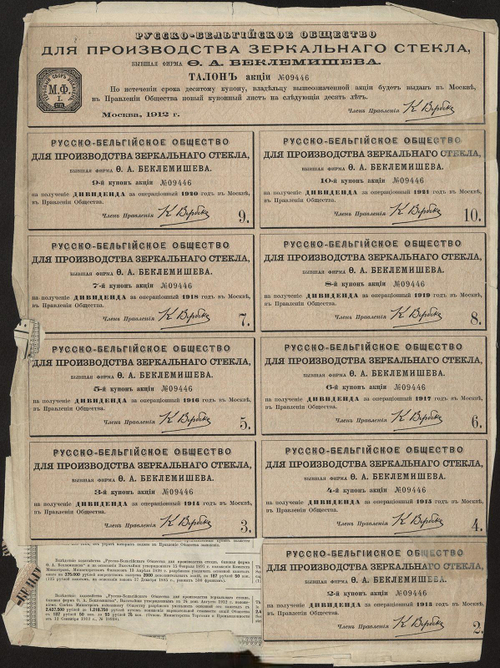 РУССКО-БЕЛЬГІЙСКОЕ ОБЩЕСТВО
ДЛЯ ПРОИЗВОДСТВА ЗЕРКАЛЬНАГО СТЕКЛА,
БЫВШАЯ ФИРМА Ѳ. А. БЕКЛЕМИШЕВА.
ТАЛОНЪ акціи №09446
По истеченіи срока десятому купону, владѣльцу вышеозначенной акціи будетъ выданъ въ Москвѣ,
въ Правленіи Общества новый купонный листъ на слѣдующія десять лѣтъ.
Москва, 1912 г.
Членъ Правленія
М.Ф.
I.
РУССКО-БЕЛЬГІЙСКОЕ ОБЩЕСТВО
ДЛЯ ПРОИЗВОДСТВА ЗЕРКАЛЬНАГО СТЕКЛА,
БЫВШАЯ ФИРМА Ѳ. А. БЕКЛЕМИШЕВА.
9-й купонъ акціи №09446
на полученіе ДИВИДЕНДА за операціонный 1920 годъ въ Москвѣ,
въ Правленіи Общества.
Членъ Правленія
9.
РУССКО-БЕЛЬГІЙСКОЕ ОБЩЕСТВО
ДЛЯ ПРОИЗВОДСТВА ЗЕРКАЛЬНАГО СТЕКЛА,
БЫВШАЯ ФИРМА Ѳ. А. БЕКЛЕМИШЕВА.
10-й купонъ акціи №09446
на полученіе ДИВИДЕНДА за операціонный 1921 годъ въ Москвѣ,
въ Правленіи Общества.
Членъ Правленія
10.
РУССКО-БЕЛЬГІЙСКОЕ ОБЩЕСТВО
ДЛЯ ПРОИЗВОДСТВА ЗЕРКАЛЬНАГО СТЕКЛА,
БЫВШАЯ ФИРМА Ѳ. А. БЕКЛЕМИШЕВА.
7-й купонъ акціи №09446
на полученіе ДИВИДЕНДА за операціонный 1918 годъ въ Москвѣ,
въ Правленіи Общества.
Членъ Правленія
7.
РУССКО-БЕЛЬГІЙСКОЕ ОБЩЕСТВО
ДЛЯ ПРОИЗВОДСТВА ЗЕРКАЛЬНАГО СТЕКЛА,
БЫВШАЯ ФИРМА Ѳ. А. БЕКЛЕМИШЕВА.
8-й купонъ акціи №09446
на полученіе ДИВИДЕНДА за операціонный 1919 годъ въ Москвѣ,
въ Правленіи Общества.
Членъ Правленія
8.
РУССКО-БЕЛЬГІЙСКОЕ ОБЩЕСТВО
ДЛЯ ПРОИЗВОДСТВА ЗЕРКАЛЬНАГО СТЕКЛА,
БЫВШАЯ ФИРМА Ѳ. А. БЕКЛЕМИШЕВА.
5-й купонъ акціи №09446
на полученіе ДИВИДЕНДА за операціонный 1916 годъ въ Москвѣ,
въ Правленіи Общества.
Членъ Правленія
5.
РУССКО-БЕЛЬГІЙСКОЕ ОБЩЕСТВО
ДЛЯ ПРОИЗВОДСТВА ЗЕРКАЛЬНАГО СТЕКЛА,
БЫВШАЯ ФИРМА Ѳ. А. БЕКЛЕМИШЕВА.
6-й купонъ акціи №09446
на полученіе ДИВИДЕНДА за операціонный 1917 годъ въ Москвѣ,
въ Правленіи Общества.
Членъ Правленія
6.
РУССКО-БЕЛЬГІЙСКОЕ ОБЩЕСТВО
ДЛЯ ПРОИЗВОДСТВА ЗЕРКАЛЬНАГО СТЕКЛА,
БЫВШАЯ ФИРМА Ѳ. А. БЕКЛЕМИШЕВА.
3-й купонъ акціи №09446
на полученіе ДИВИДЕНДА за операціонный 1914 годъ въ Москвѣ,
въ Правленіи Общества.
Членъ Правленія
3.
РУССКО-БЕЛЬГІЙСКОЕ ОБЩЕСТВО
ДЛЯ ПРОИЗВОДСТВА ЗЕРКАЛЬНАГО СТЕКЛА,
БЫВШАЯ ФИРМА Ѳ. А. БЕКЛЕМИШЕВА.
4-й купонъ акціи №09446
на полученіе ДИВИДЕНДА за операціонный 1915 годъ въ Москвѣ,
въ Правленіи Общества.
Членъ Правленія
4.
РУССКО-БЕЛЬГІЙСКОЕ ОБЩЕСТВО
ДЛЯ ПРОИЗВОДСТВА ЗЕРКАЛЬНАГО СТЕКЛА,
БЫВШАЯ ФИРМА Ѳ. А. БЕКЛЕМИШЕВА.
2-й купонъ акціи №09446
на полученіе ДИВИДЕНДА за операціонный 1913 годъ въ Москвѣ,
въ Правленіи Общества.
Членъ Правленія
2.